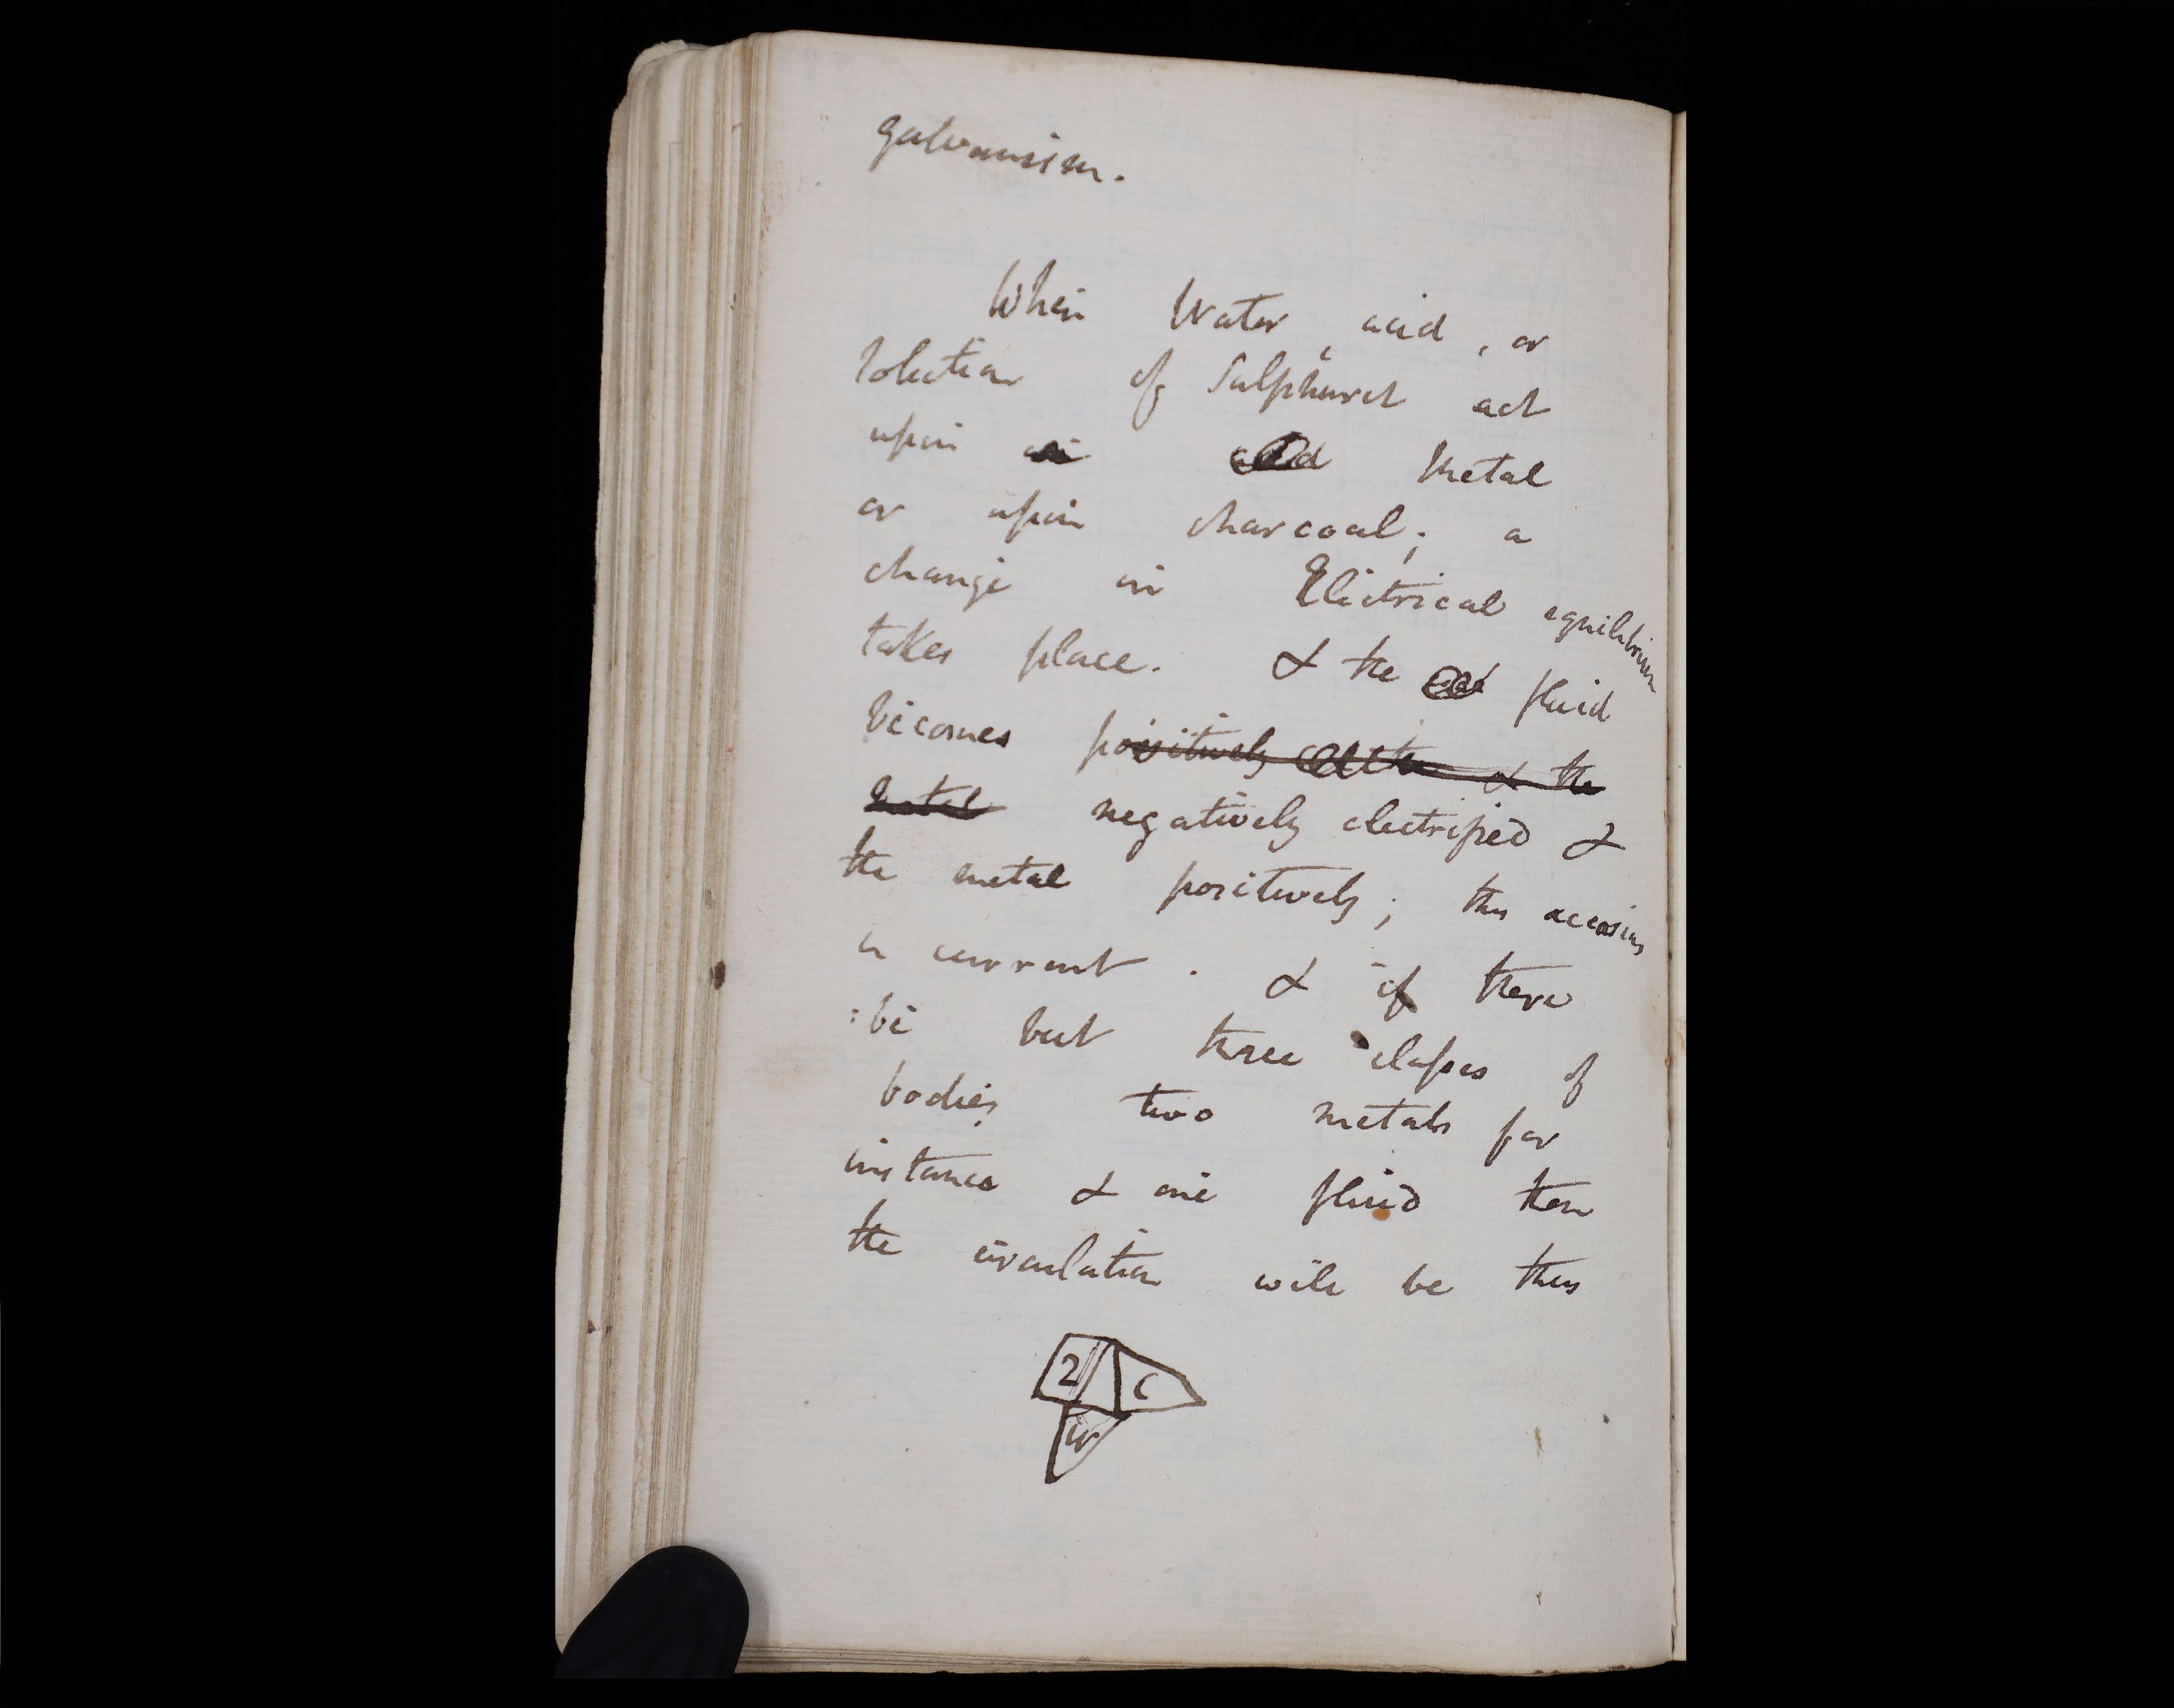 galvanism.
When Water, acid, or
Solution of Sulphuret act
upon an acid Metal
or upon charcoal; a
change in Electrical equilibrium
takes place. & the fluid
becomes positively & the
metal negatively electrified &
the metal positively; this occasions
a current. & if there
be but three classes of
bodies, two metals for
instance & one fluid then
the circulation will be thus
Z C
W